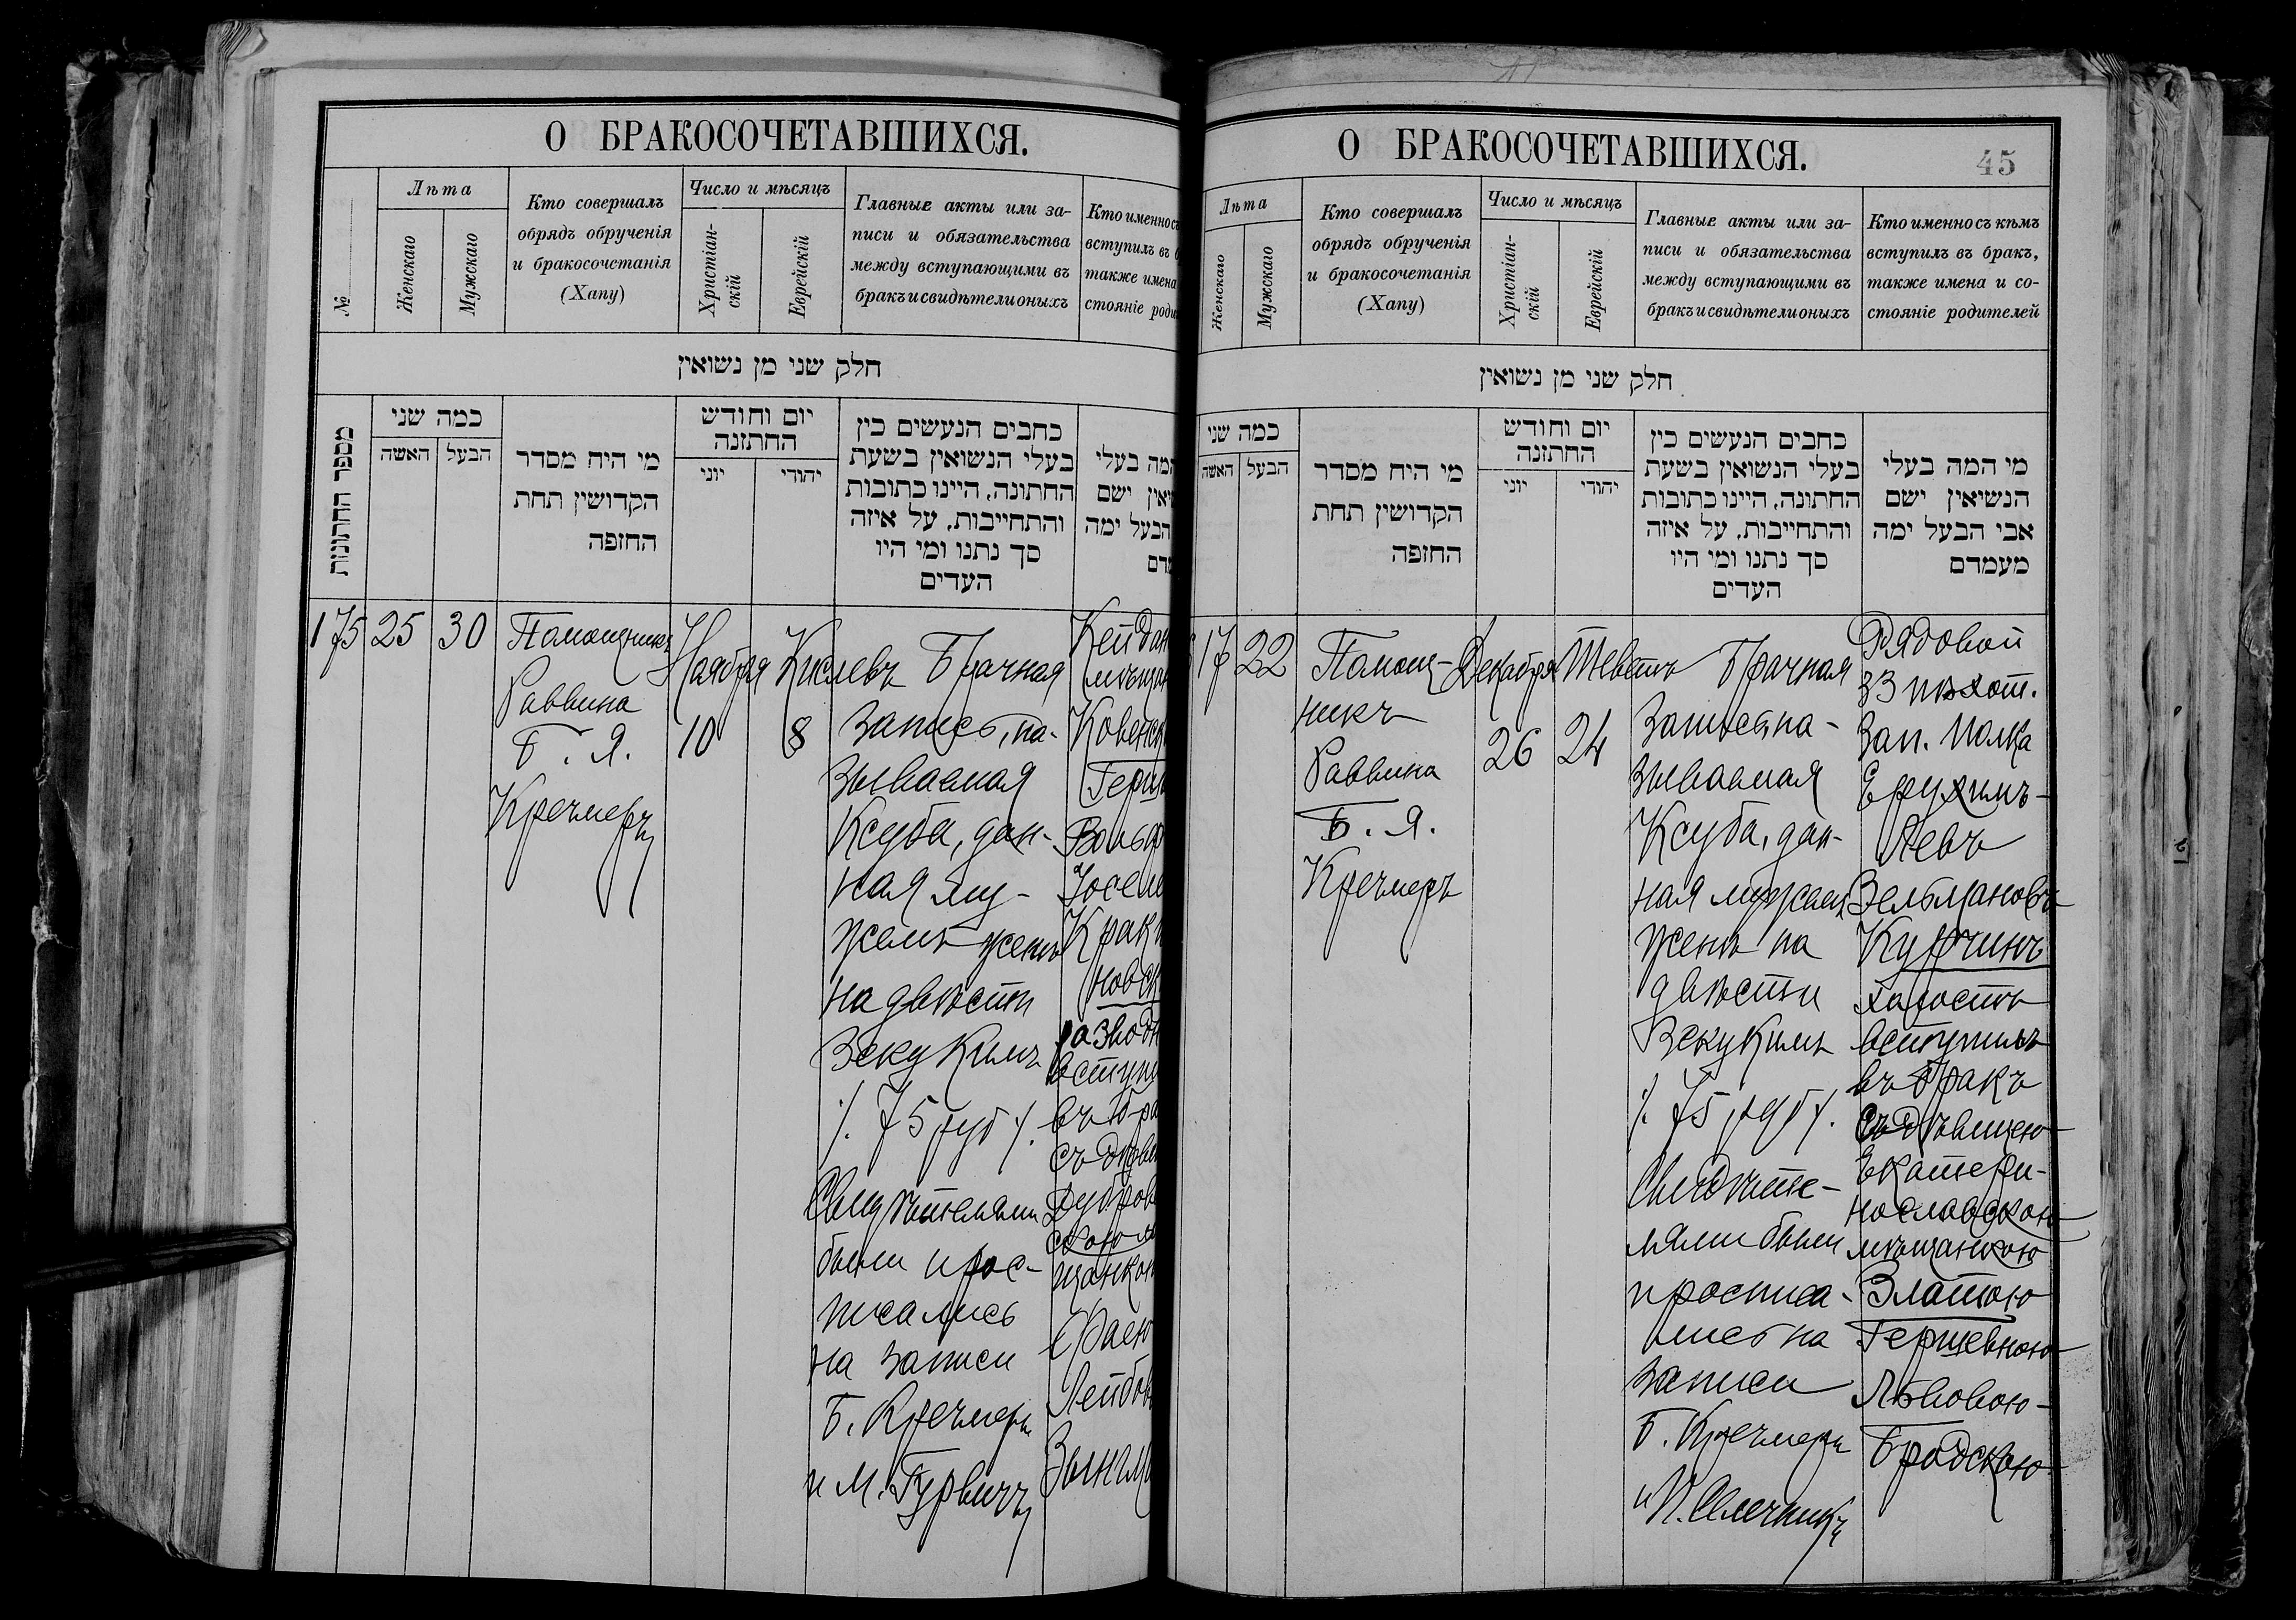 О БРАКОСОЧЕТАВШИХСЯ.
№
Лѣта
Женскаго
Мужскаго
Кто совершалъ
обрядъ обрученія
и бракосочетанія
(Хапу)
Число и мѣсяцъ
Христіан-
скій
Еврейскій
Главные акты или за-
писи и обязательства
между вступающими въ
бракъ и свидѣтели оныхъ
Кто именно съ
вступилъ въ
также имена
стояніе
חלק שני מן נשואין
מספר החתונות
כמה שני
האשה
הבעל
מי היח מסדר
הקדושין תחת
החזפה
יום וחודש
החתזנה
יוני
יהודי
כחבים הנעשים כין
בעלי הנשואין בשעת
החתונה, היינו כתובות
והתחייבות, על איזה
סך נתנו ומי היו
העדים
המה בעלי
ישם
הבעל ימה
175
25
30
Помощникъ
Раввина
Б. Я.
Кречмеръ
Ноября
10
Кислевъ
8
Брачная
запись, на-
зываемая
Ксуба, дан-
ная му-
жемъ женѣ
на двѣсти
зекукимъ
/. 75 руб /.
Свидѣтелями
были и рос-
писались
на записи
Б. Кречмеръ
и М. Гурвичъ
Кейдан
мѣщан
Ковенск
Герш
Вольф
Иосел
Крак
новск
разводн
вступи
въ бра
съ дѣви
Дубров
скою м
щанкою
Фаею
Лейбов
О БРАКОСОЧЕТАВШИХСЯ.
45
Лѣта
Женскаго
Мужскаго
Кто совершалъ
обрядъ обрученія
и бракосочетанія
(Хапу)
Число и мѣсяцъ
Христіан-
скій
Еврейскій
Главные акты или за-
писи и обязательства
между вступающими въ
бракъ и свидѣтели оныхъ
Кто именно съ кѣмъ
вступилъ въ бракъ,
также имена и со-
стояніе родителей
חלק שני מן נשואין
כמה שני
האשה
הבעל
מי היח מסדר
הקדושין תחת
החזפה
יום וחודש
החתזנה
יוני
יהודי
כחבים הנעשים כין
בעלי הנשואין בשעת
החתונה, היינו כתובות
והתחייבות, על איזה
סך נתנו ומי היו
העדים
מי המה בעלי
הנשיאין ישם
אבי הבעל ימה
מעמדם
17
22
Помощ-
никъ
Раввина
Б. Я.
Кречмеръ
Декабря
26
Теветъ
24
Брачная
запись, на-
зываемая
Ксуба, дан-
ная мужемъ
женѣ на
двѣсти
зекукимъ
/. 75 руб /.
Свидѣте-
лями были
и росписа-
лись на
записи
Б. Кречмеръ
и
Рядовой
33 пѣхот.
Зап. полка
Ерухимъ-
Левъ
Зельмановъ
Курчинъ
холостъ
вступилъ
въ бракъ
съ дѣвицею
Екатери-
нославскою
мѣщанкою
Златою
Гершевною-
Львовою-
Бродскою